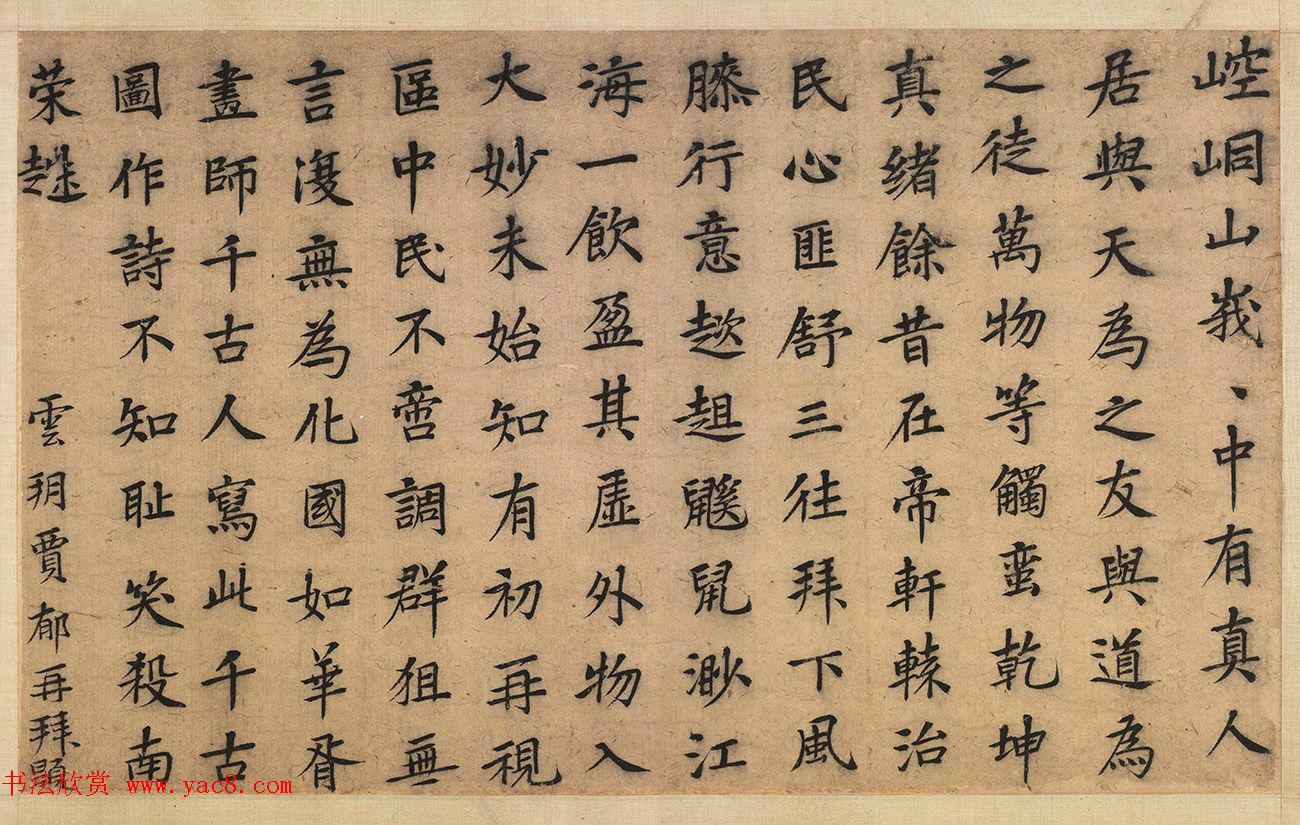 崆峒山峩、中有真人
居與天為之友與道為
之徒萬物等觸蛮乾坤
真緒餘昔在帝軒轅治
民心匪舒三往拜下風
膝行意趑趄鼷鼠渺江
海一飲盈其虛外物入
大妙未始知有初再視
區中民不啻調群狙無
言復無為化國如華胥
畫師千古人寫此千古
圖作詩不知耻笑殺南
荣趎
雲玥賈郁再拜題
书法欣赏 www.yac8.com